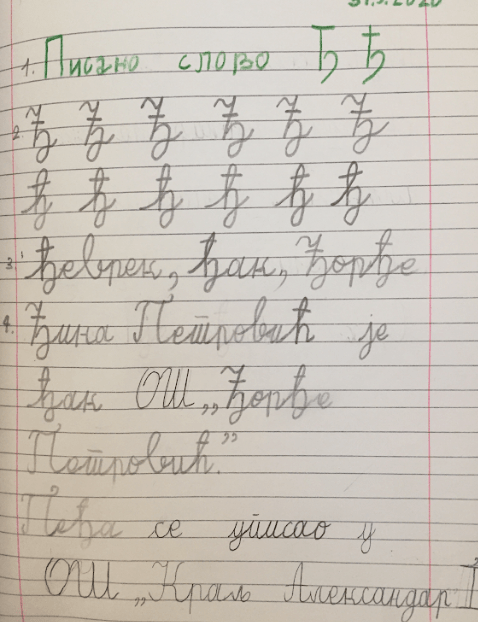 31.3.2020
1. Писано слово Ђ ђ
2. Ђ Ђ Ђ Ђ Ђ Ђ
ђ ђ ђ ђ ђ ђ
3. ђеврек, ђак, Ђорђе
4. Ђина Петровић је
ђак ОШ „Ђорђе
Петровић”
Пеђа се уписао у
ОШ „Краљ Александар I